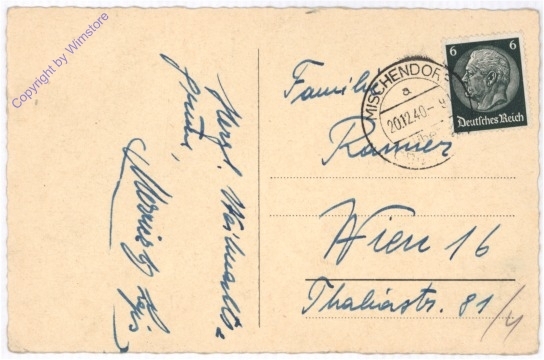 Copyright by Wimstore
Herzl. Weihnachts-
grüße
Familie
Rammer
Wien 16
Thaliastr. 81/4
MISCHENDORF
a
20.12.40
6 6
Deutsches Reich